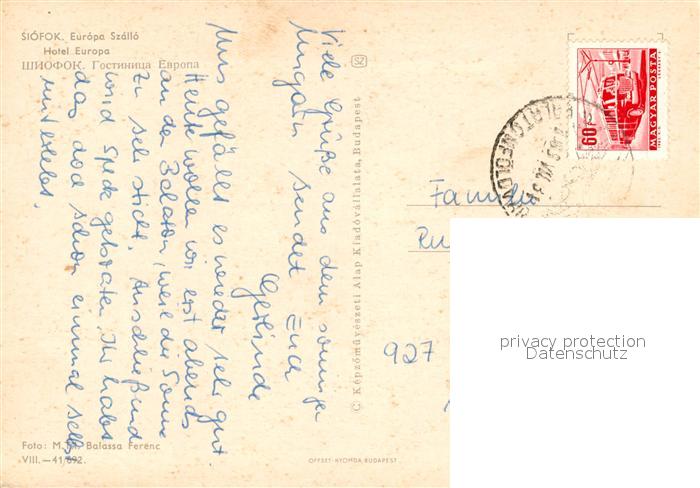 SIÓFOK. Európa Szálló
Hotel Europa
ШИОФОК. Гостиница Европа
Viele Grüße aus dem sonnigen
Ungarn sendet Euch
Gerlinde
Uns gefällt es wieder sehr gut.
Heute wollen wir erst abends
an den Balaton, weil die Sonne
zu sehr sticht. Anschließend
wird Speck gebraten. Ihr habt
das doch schon einmal selbst
miterlebt.
© Képzőművészeti Alap Kiadóvállalata, Budapest
SZ
60f
MAGYAR POSTA
Familie
927
privacy protection
Datenschutz
Foto: M. Balassa Ferenc
VIII.—41/692.
OFFSET-NYOMDA BUDAPEST